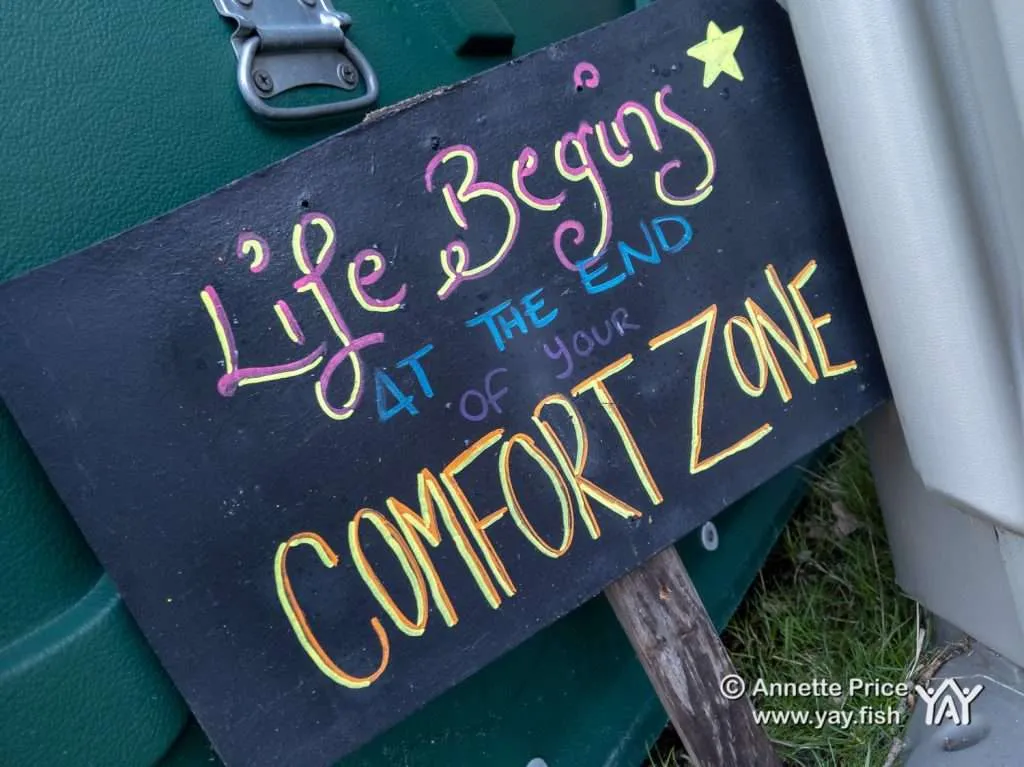 Life Begins
AT THE END
OF YOUR
COMFORT ZONE
© Annette Price
www.yay.fish
YAY